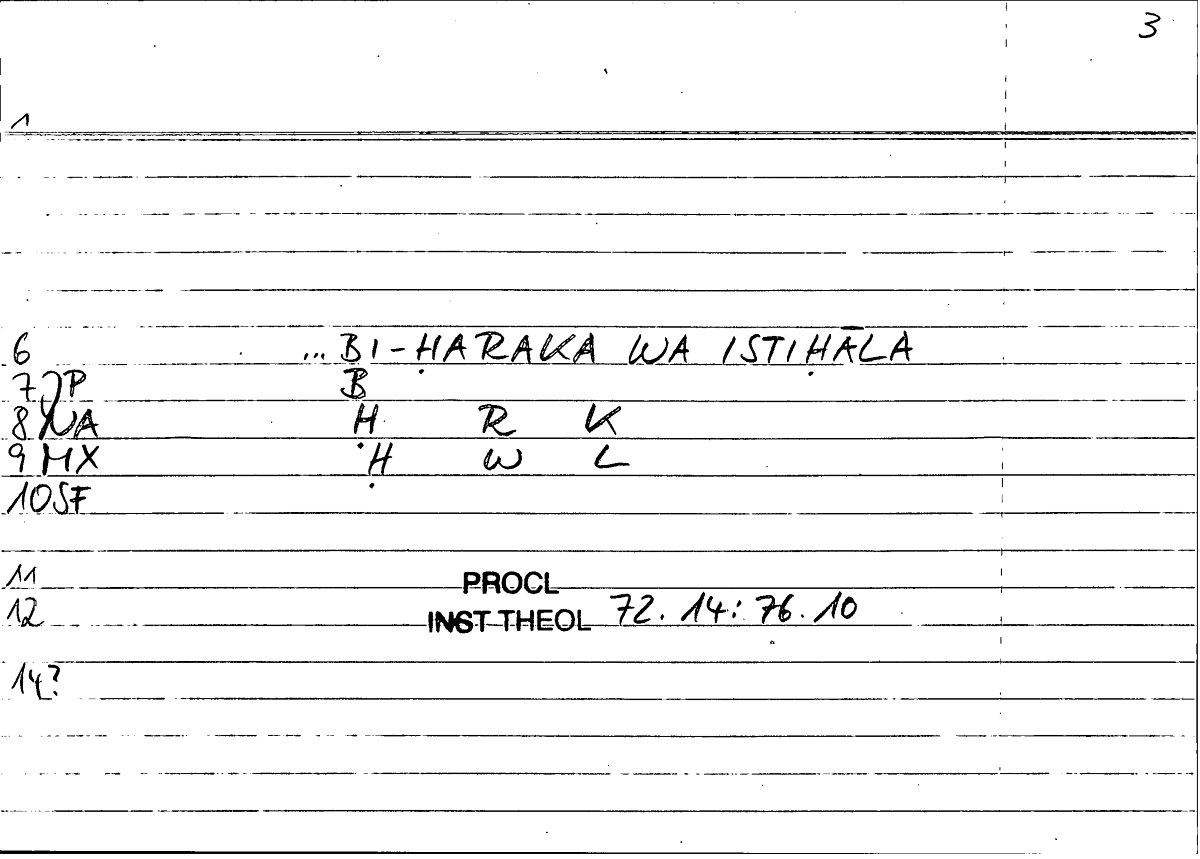 3
1
6 ... BI-ḤARAKA WA ISTIḤĀLA
7 JP B
8 NA Ḥ R K
9 MX Ḥ W L
10 SF
11 PROCL
12 INST THEOL 72. 14: 76. 10
14?